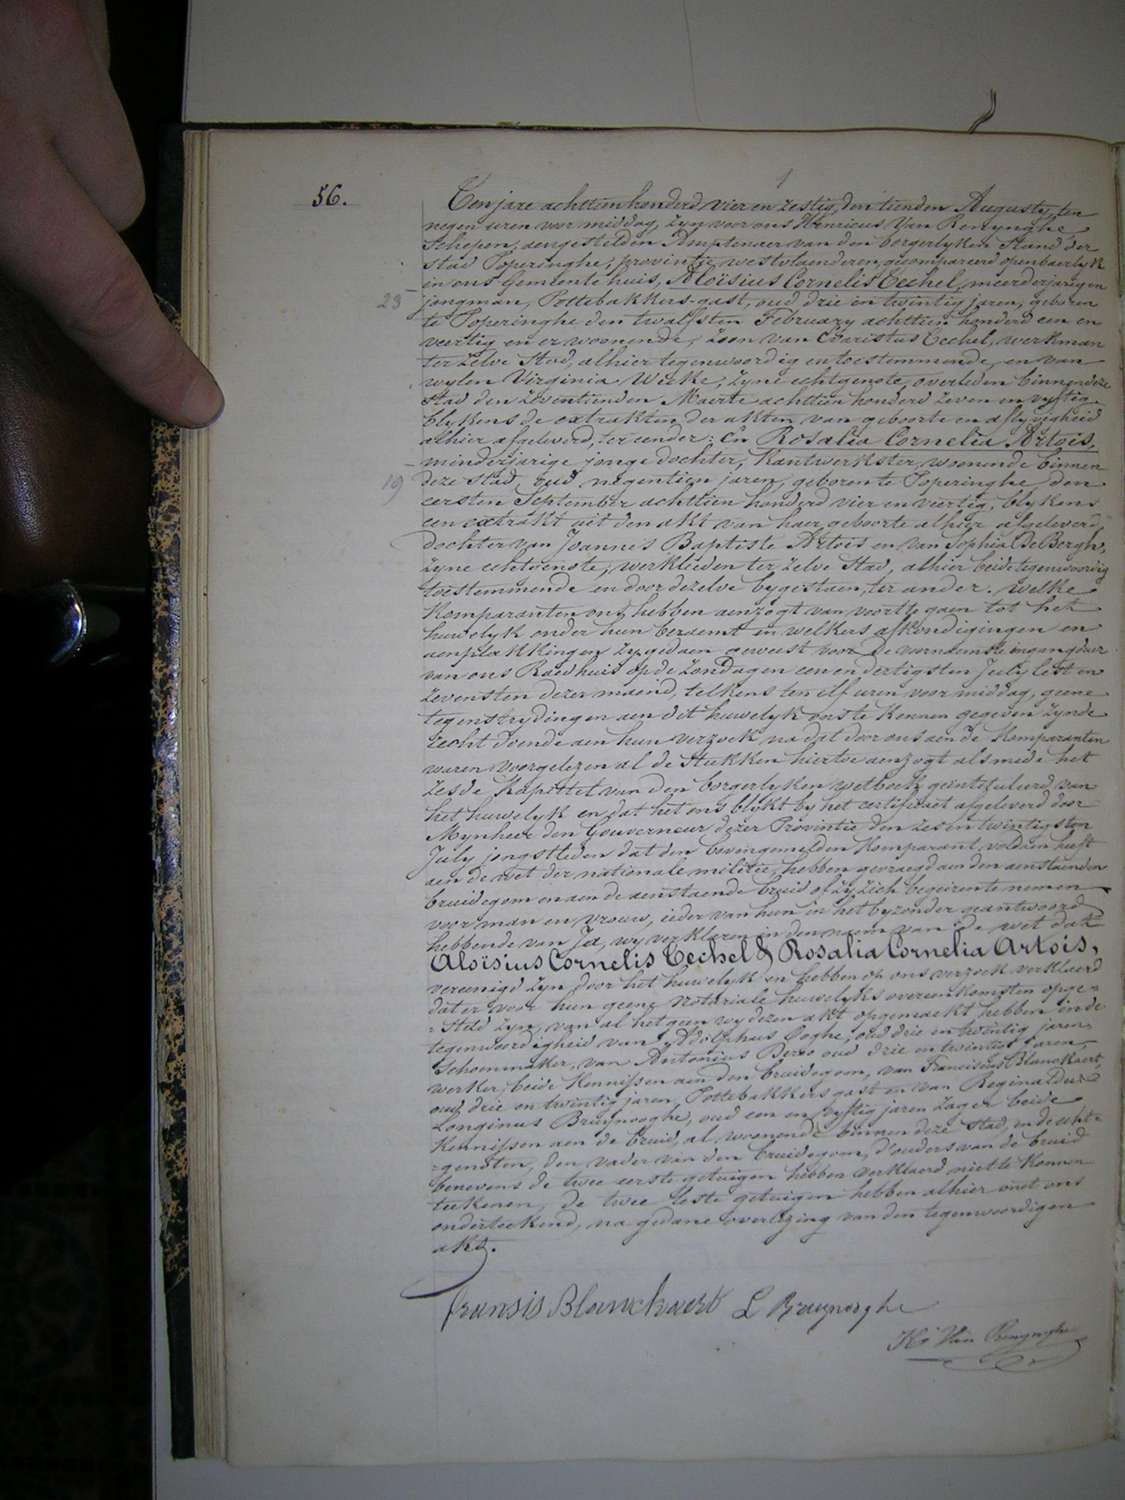 56.
Ten jare achttienhonderd vier en zestig, den tienden Augusty, ten
negen uren voor middag, zyn voor ons Henricus Van Renynghe
Schepen, aengestelden Amptenaer van den borgerlyken Stand der
Stad Poperinghe, provintie westvlaenderen, gecompareerd openbaerlyk
in ons Gemeente huis, Aloïsius Cornelis Techel, meerderjarigen
23 jongman, Pottebakkers-gast, oud drie en twintig jaren, geboren
te Poperinghe den twalfsten February achttien honderd een en
veertig en er woonende, zoon van Evaristus Techel, werkman
ter zelve Stad, alhier tegenwoordig en toestemmende, en van
wylen Virginia Werke, zyne echtgenote, overleden binnen deze
Stad den zeventienden Maerte achttien honderd zeven en vyftig
blykens de extrakten der akten van geboorte en aflyvigheid
alhier afgeleverd, ter eender: En Rosalia Cornelia Artois,
minderjarige jonge dochter, Kantwerkster, woonende binnen
19 deze Stad, oud negentien jaren, geboren te Poperinghe den
eersten September achttien honderd vier en veertig, blykens
een extrakt uit den akt van haer geboorte alhier afgeleverd,
dochter van Joannes Baptiste Artois en van Sophia De Bergh,
zyne echtgenote, werklieden ter zelve Stad, alhier beide tegenwoordig
toestemmende en door dezelve bygestaen, ter ander. Welke
Komparanten ons hebben aenzogt van voort te gaen tot het
huwelyk onder hun beraemt en welkers afkondigingen en
aenplakkingen zyn gedaen geweest voor de vernaemste ingangdeur
van ons Raedhuis op de Zondagen een en dertigsten July lest en
zevensten dezer maend, telkens ten elf uren voor middag, geene
tegenstrydingen aen dit huwelyk ons te kennen gegeven zynde
recht doende aen hun verzoek na dat door ons aen de Komparanten
waren voorgelezen al de Stukken hiertoe aenzogt alsmede het
zesde Kapittel van den borgerlyken wetboek geïntituleerd van
het huwelyk en dat het ons blykt by het certificaet afgeleverd door
Mynheer den Gouverneur dezer Provintie den zes en twintigsten
July jongstleden dat den bovengemelden Komparant voldaen heeft
aen de wet der nationale militie, hebben gevraegd aen den aenstaenden
bruidegom en aen de aenstaende bruid of zy zich begeirente nemen
voor man en vrouw, ieder van hun in het byzonder geantwoord
hebbende van Ja, wy verklaren in den naem van de wet dat
Aloïsius Cornelis Techel & Rosalia Cornelia Artois,
vereenigd zyn door het huwelyk en hebben op ons verzoek verklaerd
dat er voor hun geene notariale huwelyks overeenkomsten opge-
-steld zyn, van al het geen wy dezen akt opgemaekt hebben in de
tegenwoordigheid van Adolphus Ooghe, oud drie en twintig jaren
Schoenmaker, van Antonius Dervo oud drie en twintig jaren,
werker, beide Kennissen aen den bruidegom, van Franciscus Blanckaert,
oud drie en twintig jaren, Pottebakkers gast en van Reginaldus
Longinus Bruynooghe, oud een en vyftig jaren zager beide
Kennissen aen de bruid, al woonende binnen deze Stad, en de echt-
-genoten, den vader van den bruidegom, d'ouders van de bruid
benevens de twee eerste getuigen hebben verklaerd niet te konnen
teekenen, de twee leste getuigen hebben alhier met ons
onderteekend, na gedane overlezing van den tegenwoordigen
akt.
Fransis Blanckaert L Bruynooghe
Hri Van Renynghe